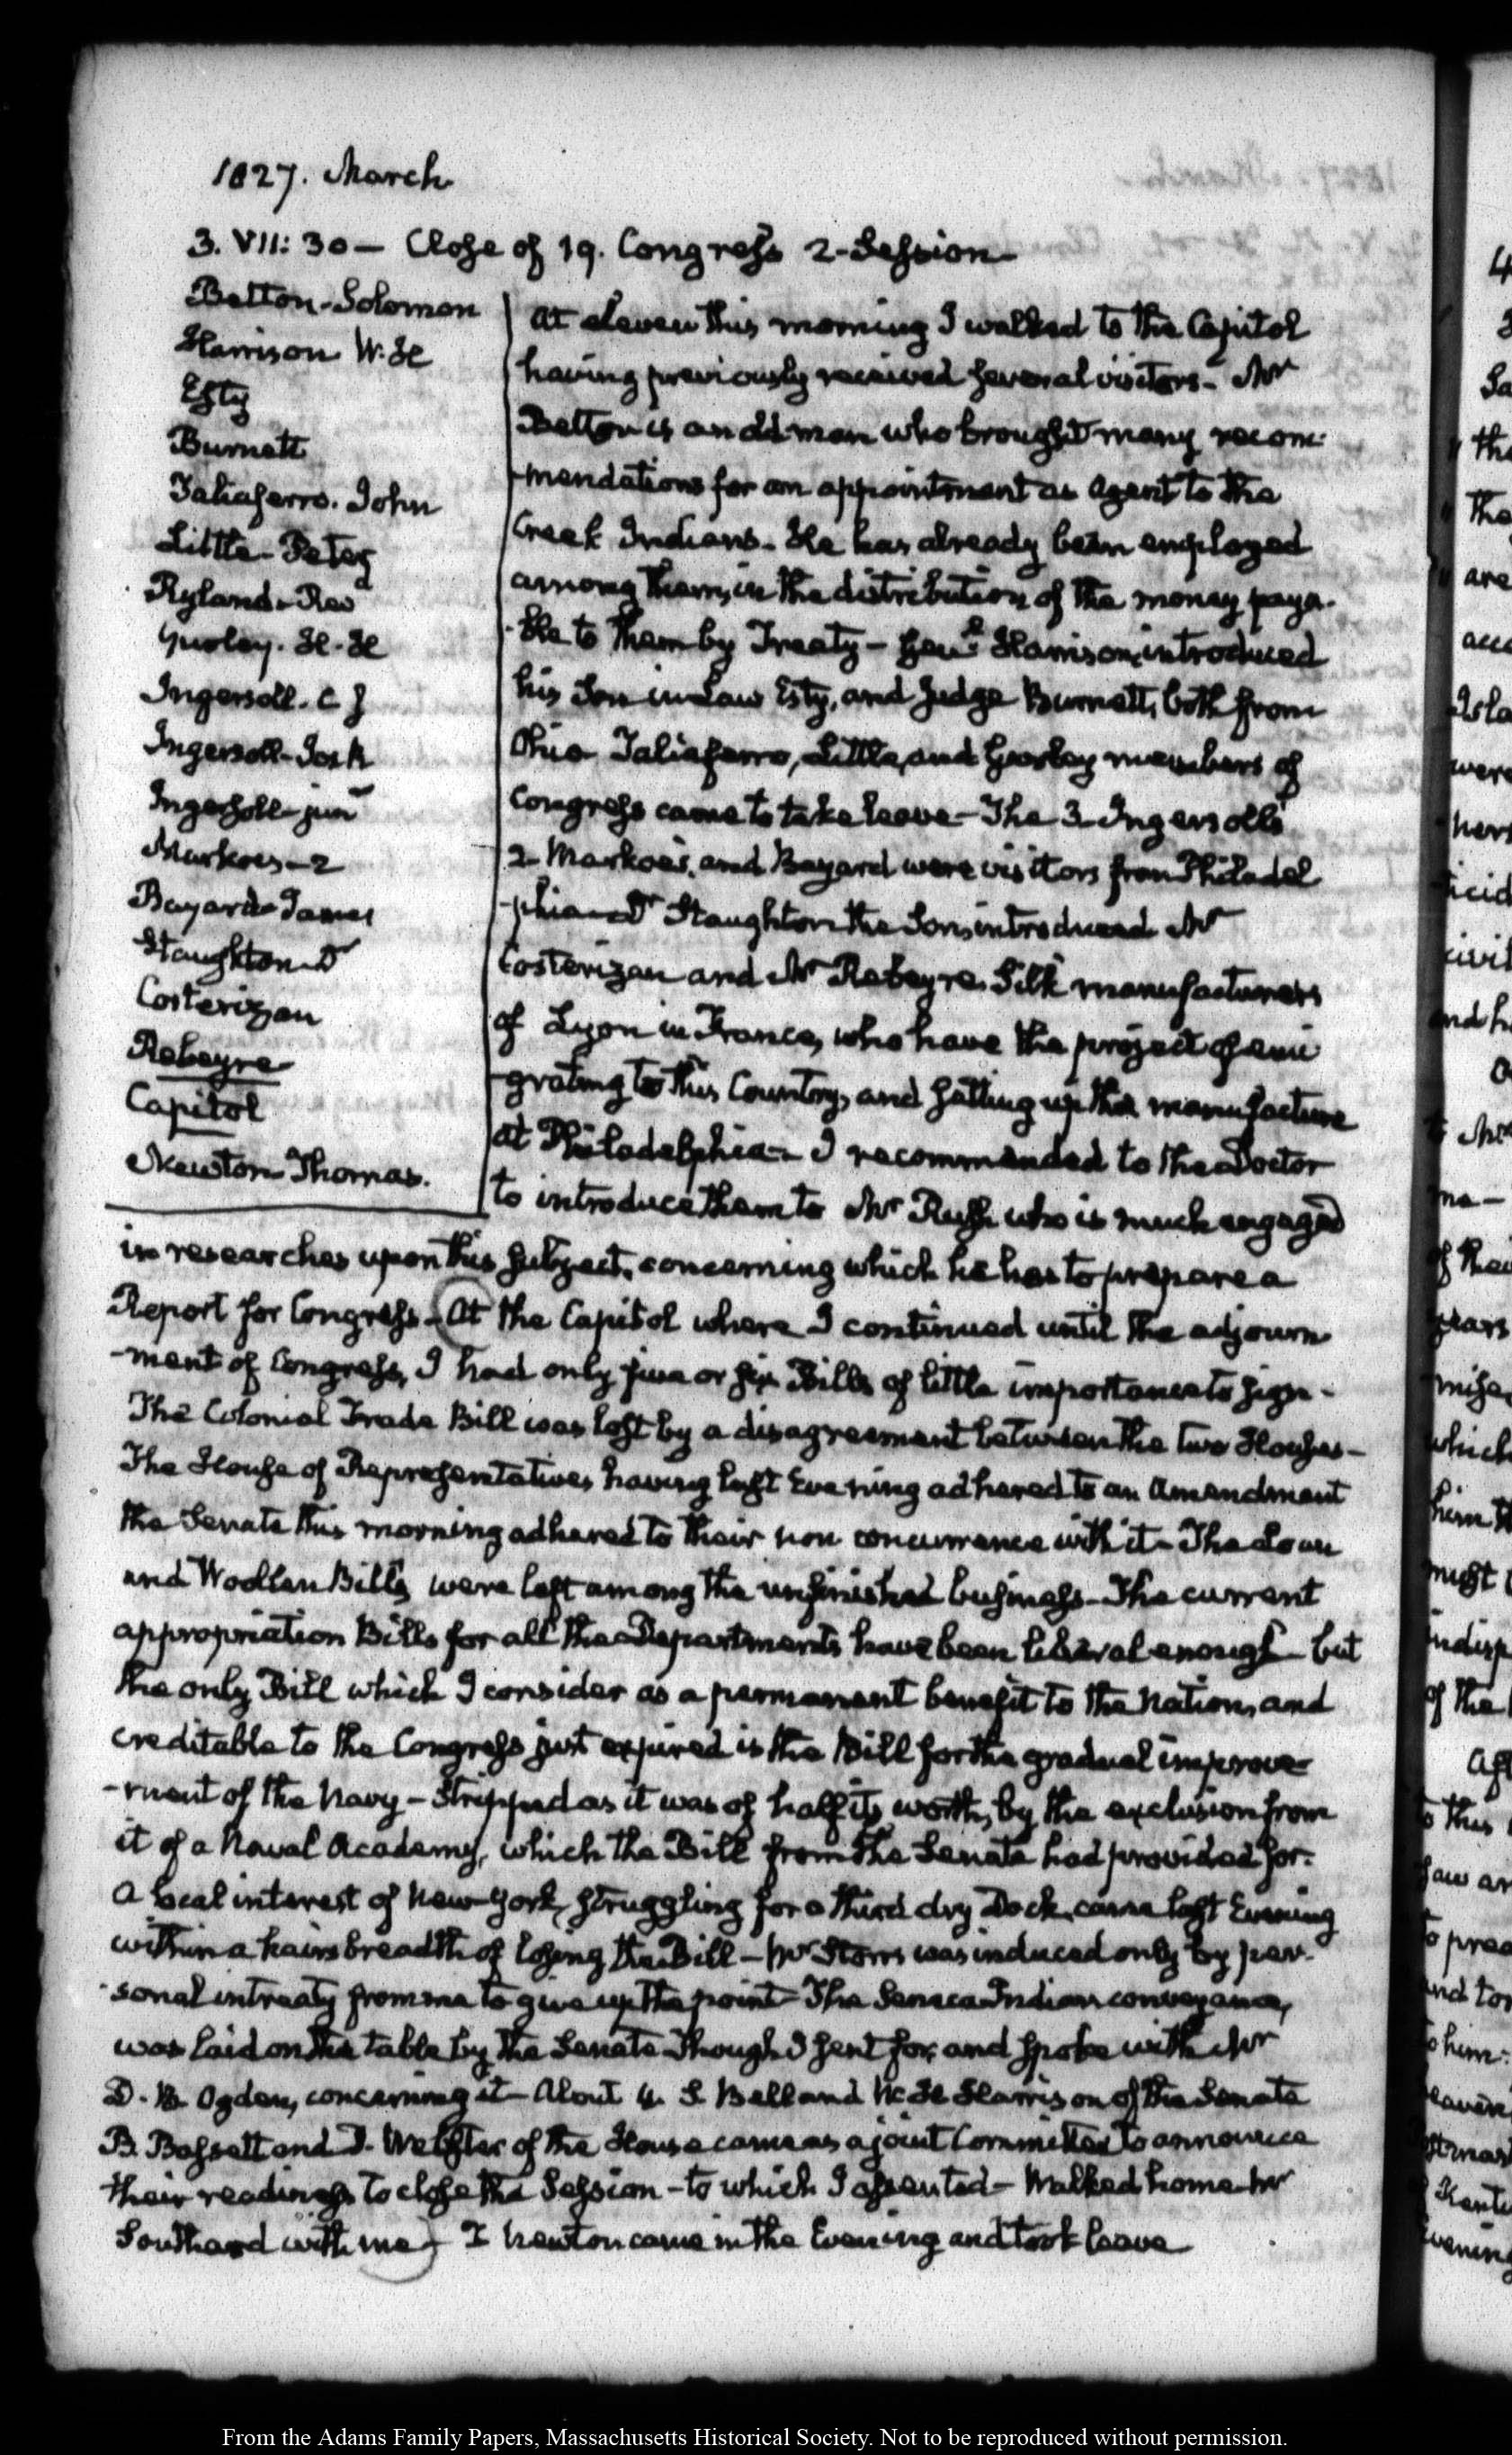 1827. March
3. VII: 30 — Close of 19. Congress 2-Session
Betton-Solomon
Harrison W. H
Esty
Burnett
Taliaferro. John
Little-Peter
Ryland-Rev
Gurley. H. H
Ingersoll. C J
Ingersoll-Jos R
Ingersoll-junr
Markoes-2
Bayard-James
Staughton-Dr
Costerizan
Rebeyre
Capitol
Newton Thomas.
At eleven this morning I walked to the Capitol
having previously received several visitors- Mr
Betton is an old man who brought many recom-
-mendations for an appointment as Agent to the
Creek Indians- He has already been employed
among them, in the distribution of the money paya-
-ble to them by Treaty- Genl Harrison, introduced
his Son in Law Esty, and Judge Burnett, both from
Ohio Taliaferro, Little, and Gurley members of
Congress came to take leave- The 3 Ingersolls
2- Markoe's, and Bayard were visitors from Philadel
-phia- Dr Staughton the Son, introduced Mr
Costerizan and Mr Rebeyre, Silk manufacturers
of Lyon in France, who have the project of emi
-grating to this Country, and setting up the manufacture
at Philadelphia- I recommended to the Doctor
to introduce them to Mr Rush who is much engaged
in researches upon this subject, concerning which he has to prepare a
Report for Congress- At the Capitol where I continued until the adjourn
-ment of Congress, I had only five or six Bills of little importance to sign-
The Colonial Trade Bill was lost by a disagreement between the two Houses-
The House of Representatives having last Evening adhered to an Amendment
the Senate this morning adhered to their non concurrence with it- The Loan
and Woollen Bills, were left among the unfinished business- The current
appropriation Bills for all the Departments have been liberal enough- but
the only Bill which I consider as a permanent benefit to the Nation, and
creditable to the Congress just expired is the Bill for the gradual improve-
-ment of the Navy- Stripped as it was of half its worth, by the exclusion from
it of a Naval Academy, which the Bill from the Senate had provided for.
A local interest of New-York, struggling for a third dry Dock, came last Evening
within a hairs breadth of losing the Bill- Mr Storrs was induced only by per-
-sonal intreaty from me to give up the point- The Seneca Indian conveyance,
was laid on the table by the Senate though I sent for, and spoke with Mr
D. B. Ogden, concerning it- About 4. S Bell and W. H Harrison of the Senate
B. Bassett and D. Webster of the House came as a joint Committee to announce
their readiness to close the Session-to which I assented- Walked home- Mr
Southard with me- T Newton came in the Evening and took leave
4
the
are
were
which
of the
to this
to him
From the Adams Family Papers, Massachusetts Historical Society. Not to be reproduced without permission.